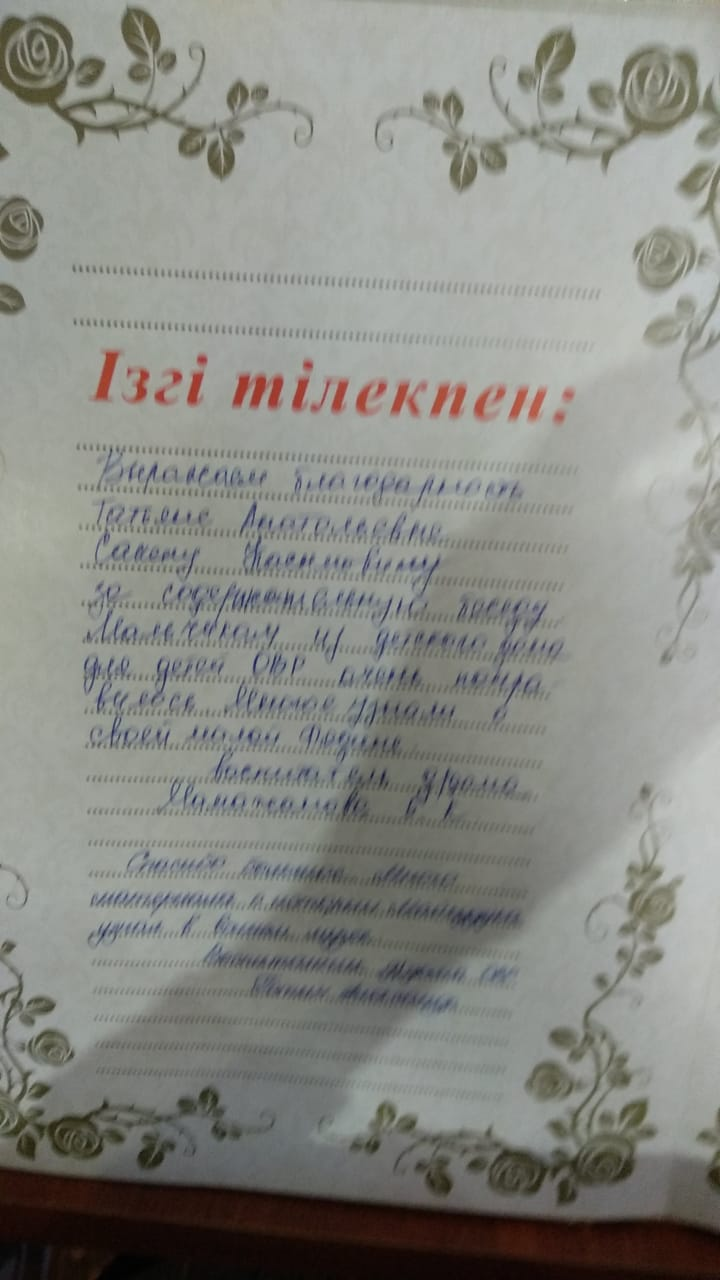 Ізгі тілекпен:
Выражаем благодарность
Татьяне Анатольевне
Сакену Касимовичу
за содержательную беседу
Мальчикам из детского дома
для детей ОВР очень понра
вилось Многое узнали о
своей малой Родине
воспитатель д/дома
Спасибо большое много
материала о котором
узнал в вашем музее
Воспитанник